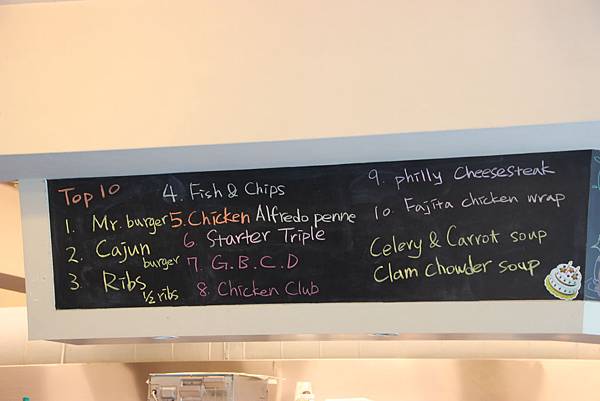 Top 10
1. Mr. burger
2. Cajun
burger
3. Ribs
1/2 ribs
4. Fish & Chips
5. Chicken Alfredo penne
6. Starter Triple
7. G.B.C.D
8. Chicken Club
9. philly Cheesesteak
10. Fajita chicken wrap
Celery & Carrot soup
Clam Chowder soup